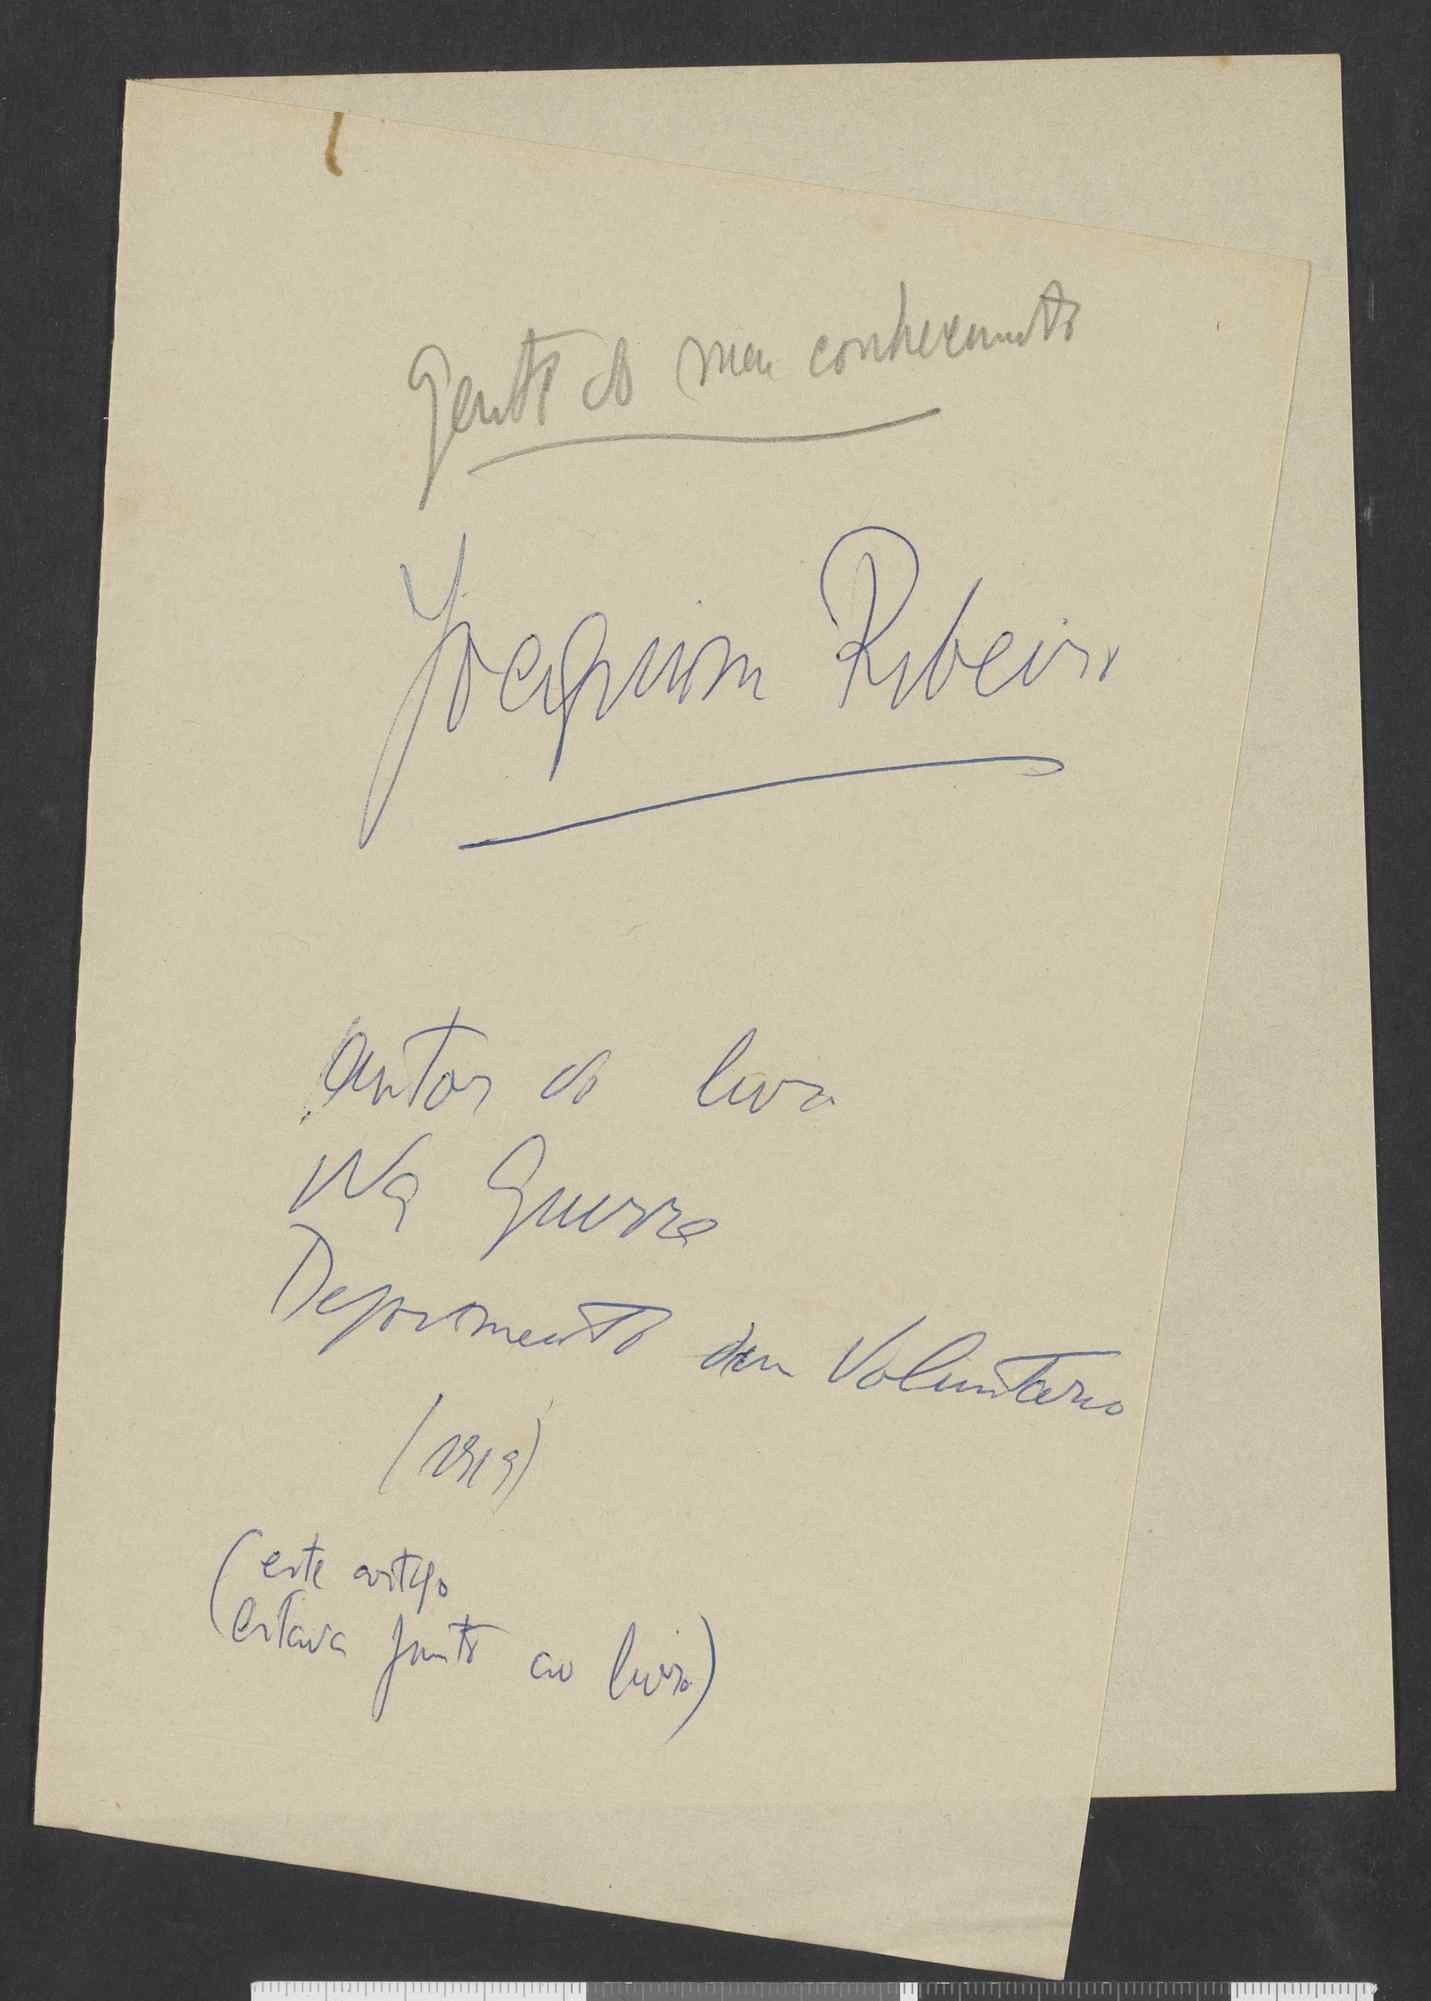 Gente do meu conhecimento
Joaquim Ribeiro
autor do livro
Na Guerra
Depoimento dum Voluntario
(1919)
(este artigo
estava junto ao livro)